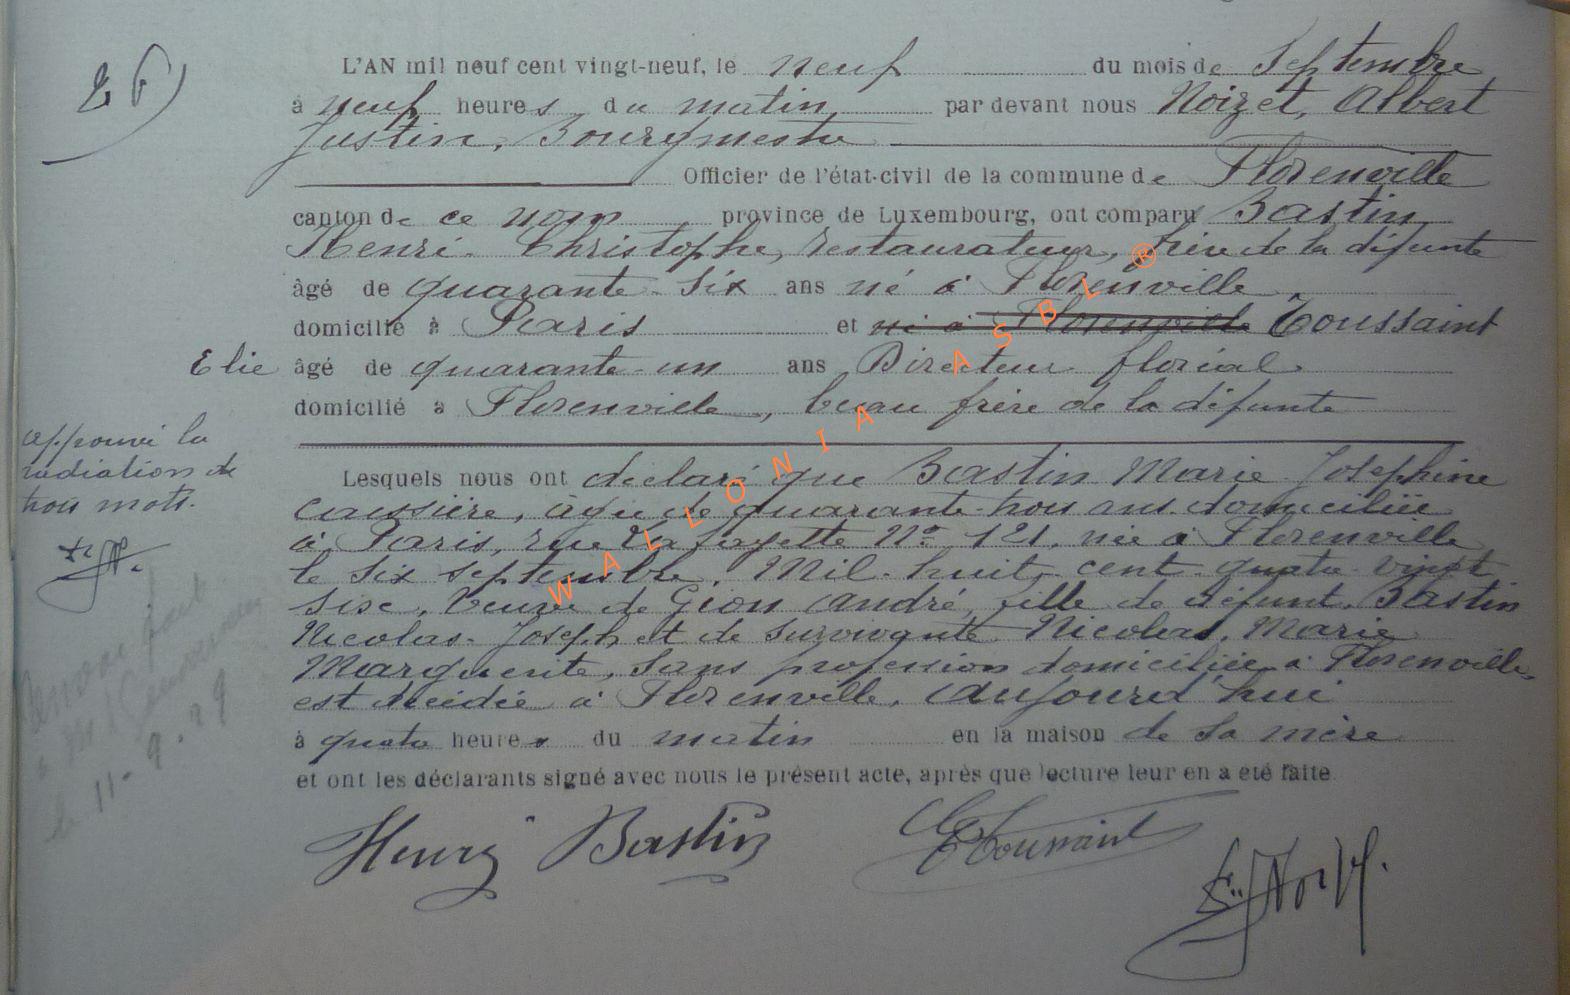 26)
L'AN mil neuf cent vingt-neuf, le neuf du mois de Septembre
à neuf heures du matin par devant nous Noizet, Albert
Justin, Bourgmestre
Officier de l'état-civil de la commune de Florenville
canton de ce nom province de Luxembourg, ont comparu Bastin
Henri Christophe, restaurateur, frère de la défunte
âgé de quarante-six ans né à Florenville
domicilié à Paris et né à Florenville Toussaint
Elie âgé de quarante-un ans Directeur
domicilié à Florenville, beau frère de la défunte
approuvé la
radiation de
trois mots.
Lesquels nous ont déclaré que Bastin Marie Joséphine
âgée de quarante-trois ans domiciliée
à Paris, rue Lafayette No 121, née à Florenville
le six septembre, Mil-huit-cent-quatre-vingt
six, Veuve de Gion André, fille de défunt Bastin
Nicolas-Joseph et de survivante Nicolas, Marie
Marguerite, sans profession domiciliée à Florenville
est décédée à Florenville, aujourd'hui
à quatre heures du matin en la maison de sa mère
et ont les déclarants signé avec nous le présent acte, après que lecture leur en a été faite
le 11-9-29
Henri Bastin
E Toussaint
WALLONIA ASBL ®